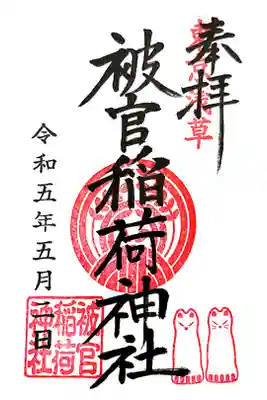 奉拝
被官稲荷神社
令和五年五月二日
被官
稲荷
神社